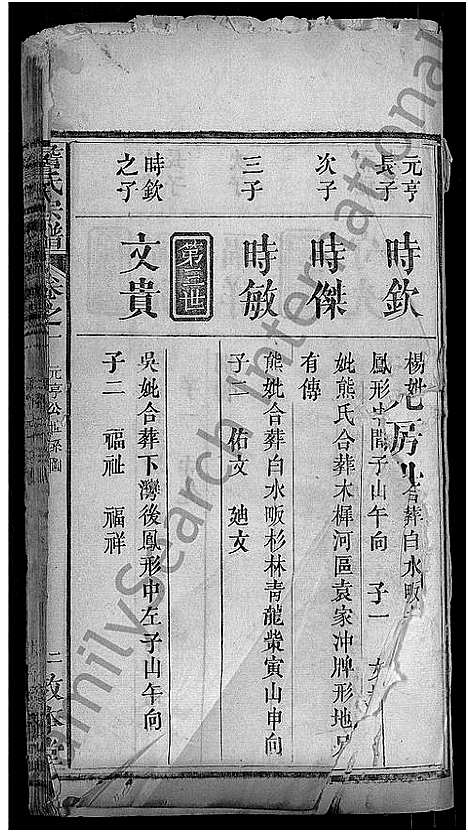 元亨長子
時欽
楊妣 合葬白水畈
鳳形 子山午向 子一
次子
時傑
妣熊氏合葬木樨河區袁家冲牌形地
有傳
三子
時敏
熊妣合葬白水畈杉林青龍柴寅山申向
子二 佑文 廸文
第三世
時欽之子
文貴
吳妣合葬下灣後鳳形中左子山午向
子二 福祉 福祥
氏宗譜 卷之一 元亨公世系圖 二
FamilySearch International